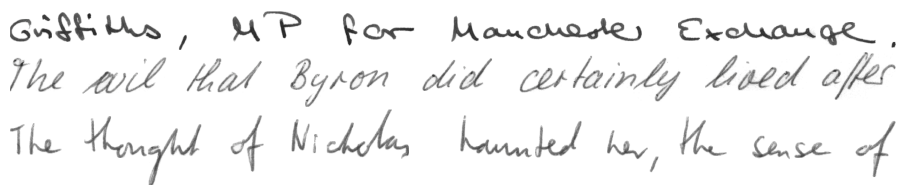 Griffiths, MP for Manchester Exchange.
The evil that Byron did certainly lived after
The thought of Nicholas haunted her, the sense of